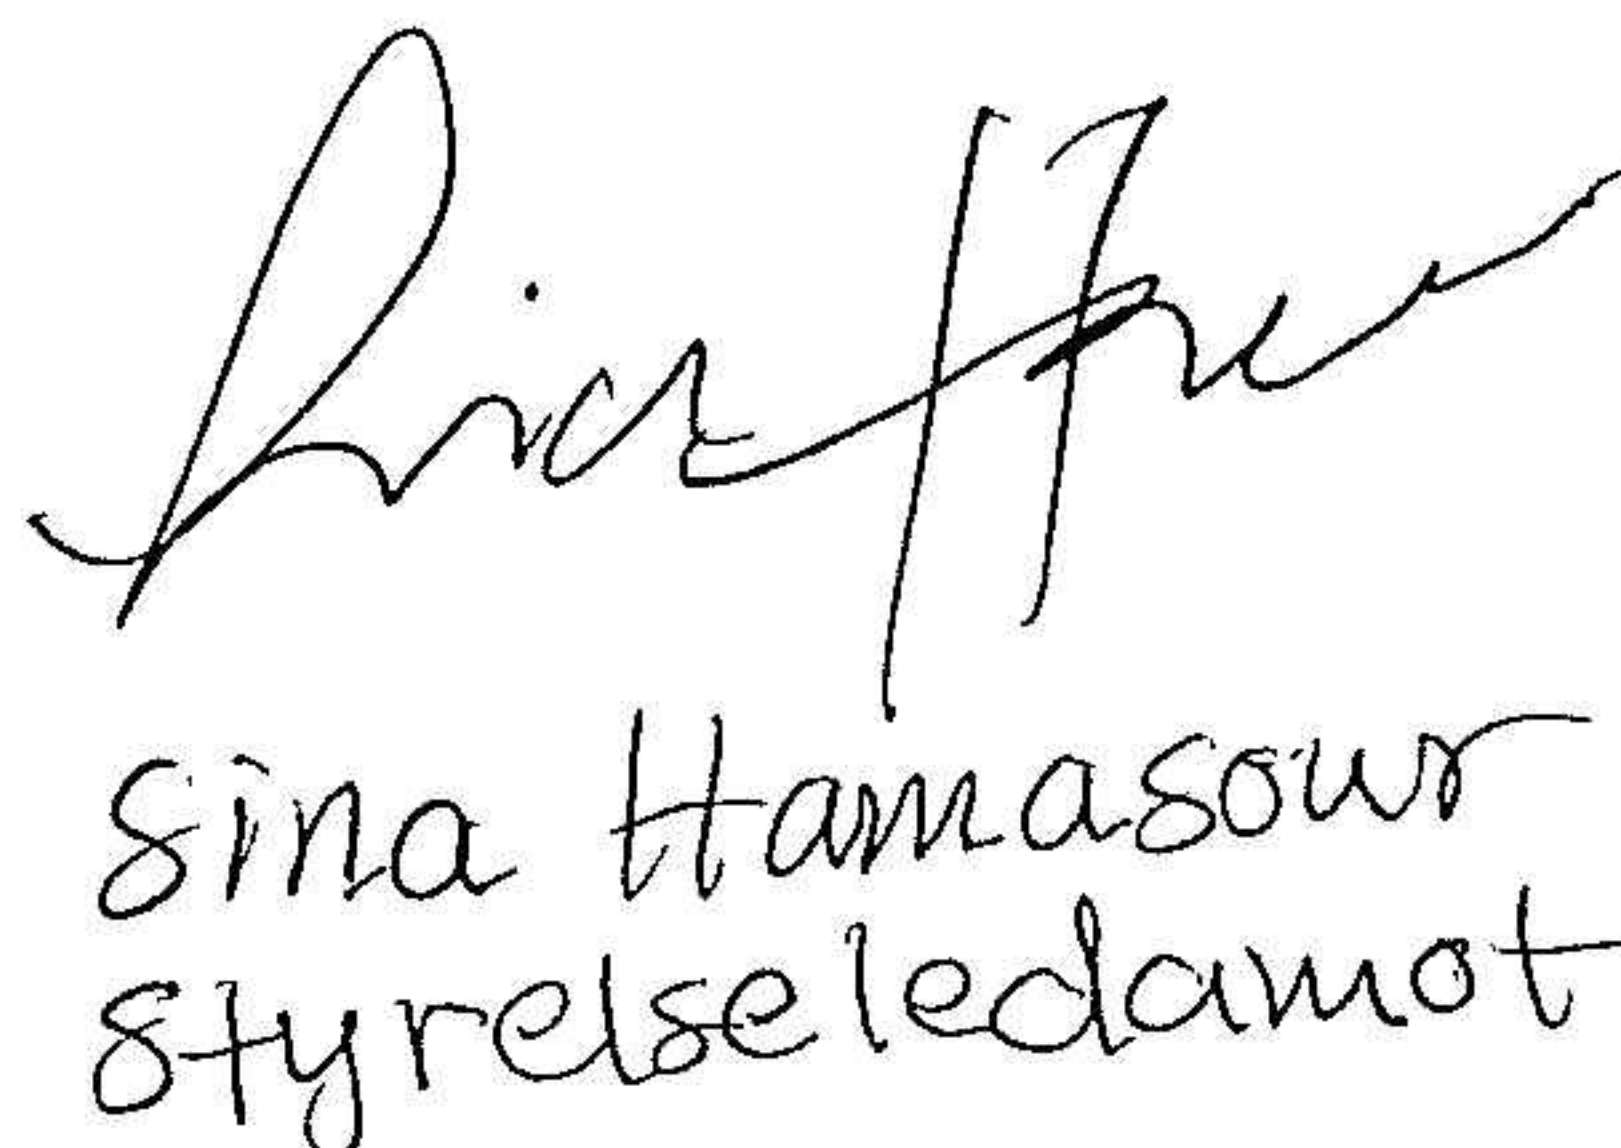 Sina Hamasour
styrelseledamot